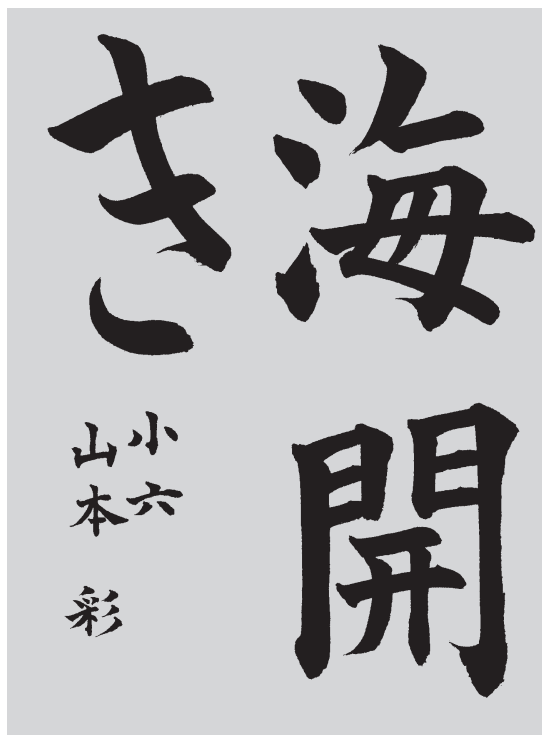 海開
き
小六
山本 彩